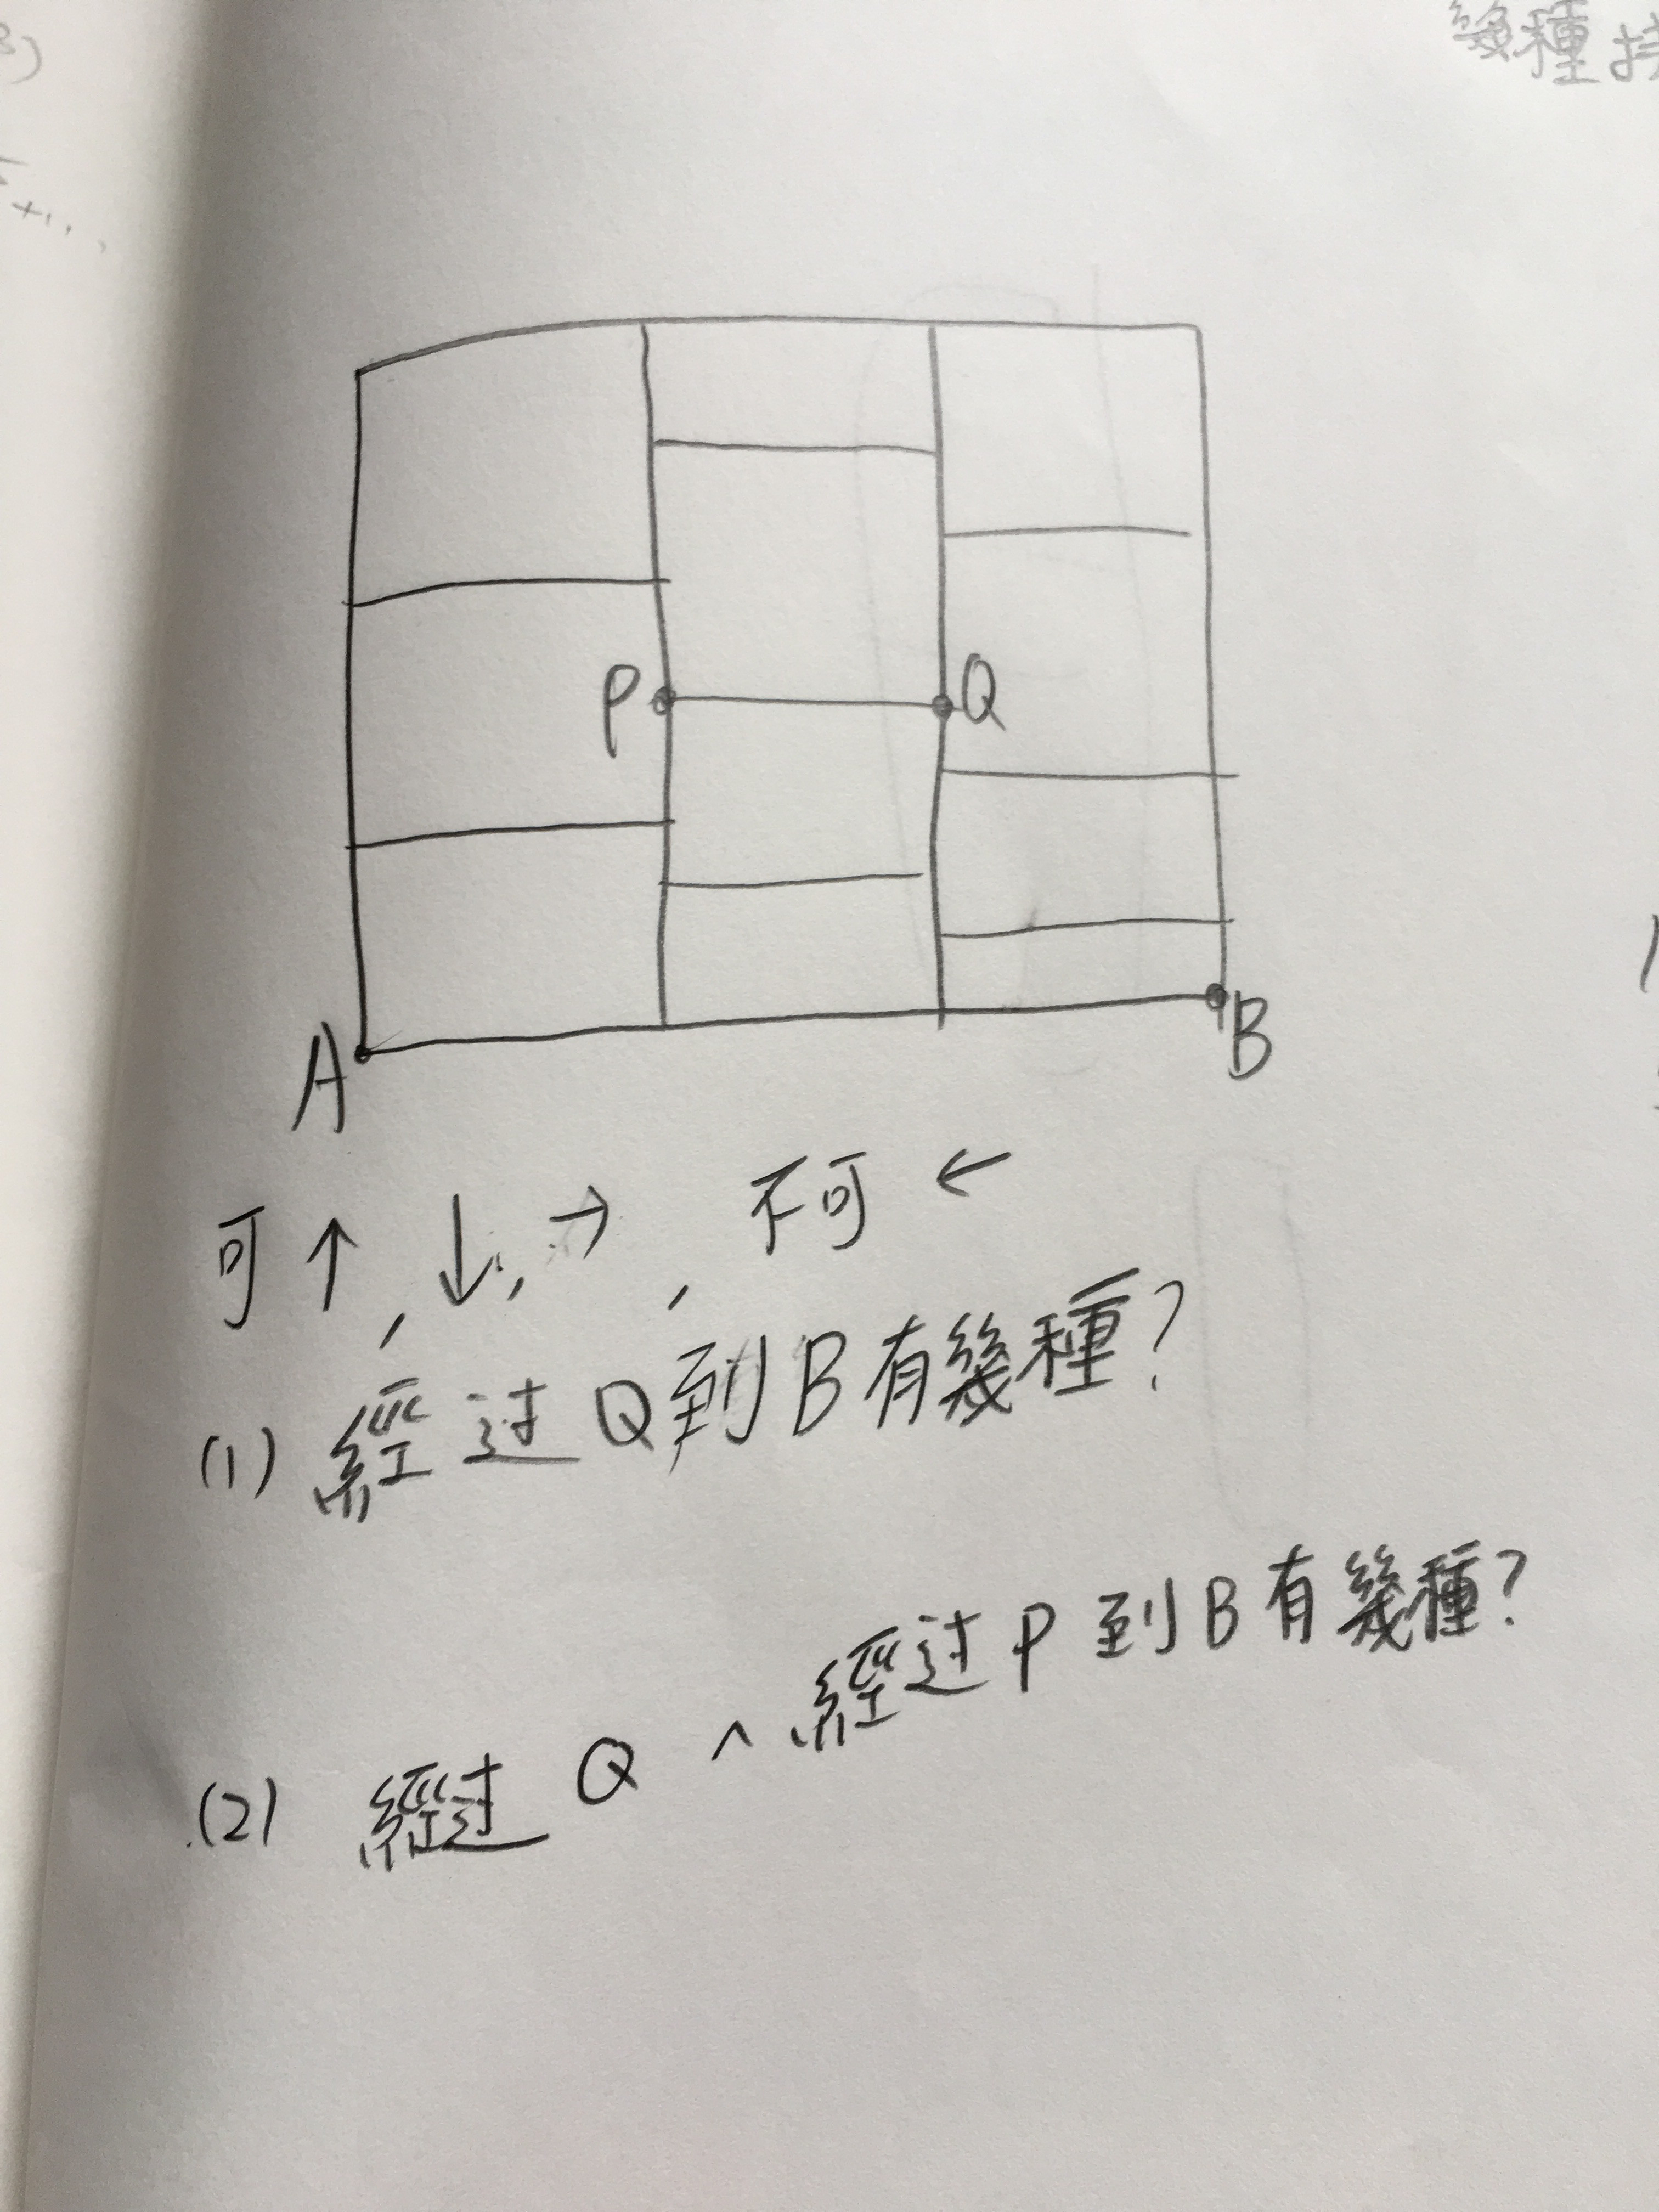 幾種
3)
P
Q
A
B
可↑,↓,→,不可←
(1) 經过Q到B有幾種?
(2) 經过Q ^ 經过P到B有幾種?